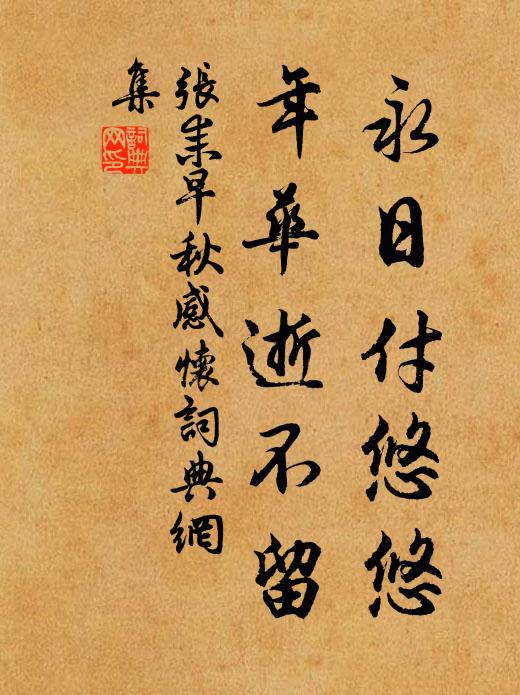 永日付悠悠
年華逝不留
張耒早秋感懷詞典網
集
詞典
网印